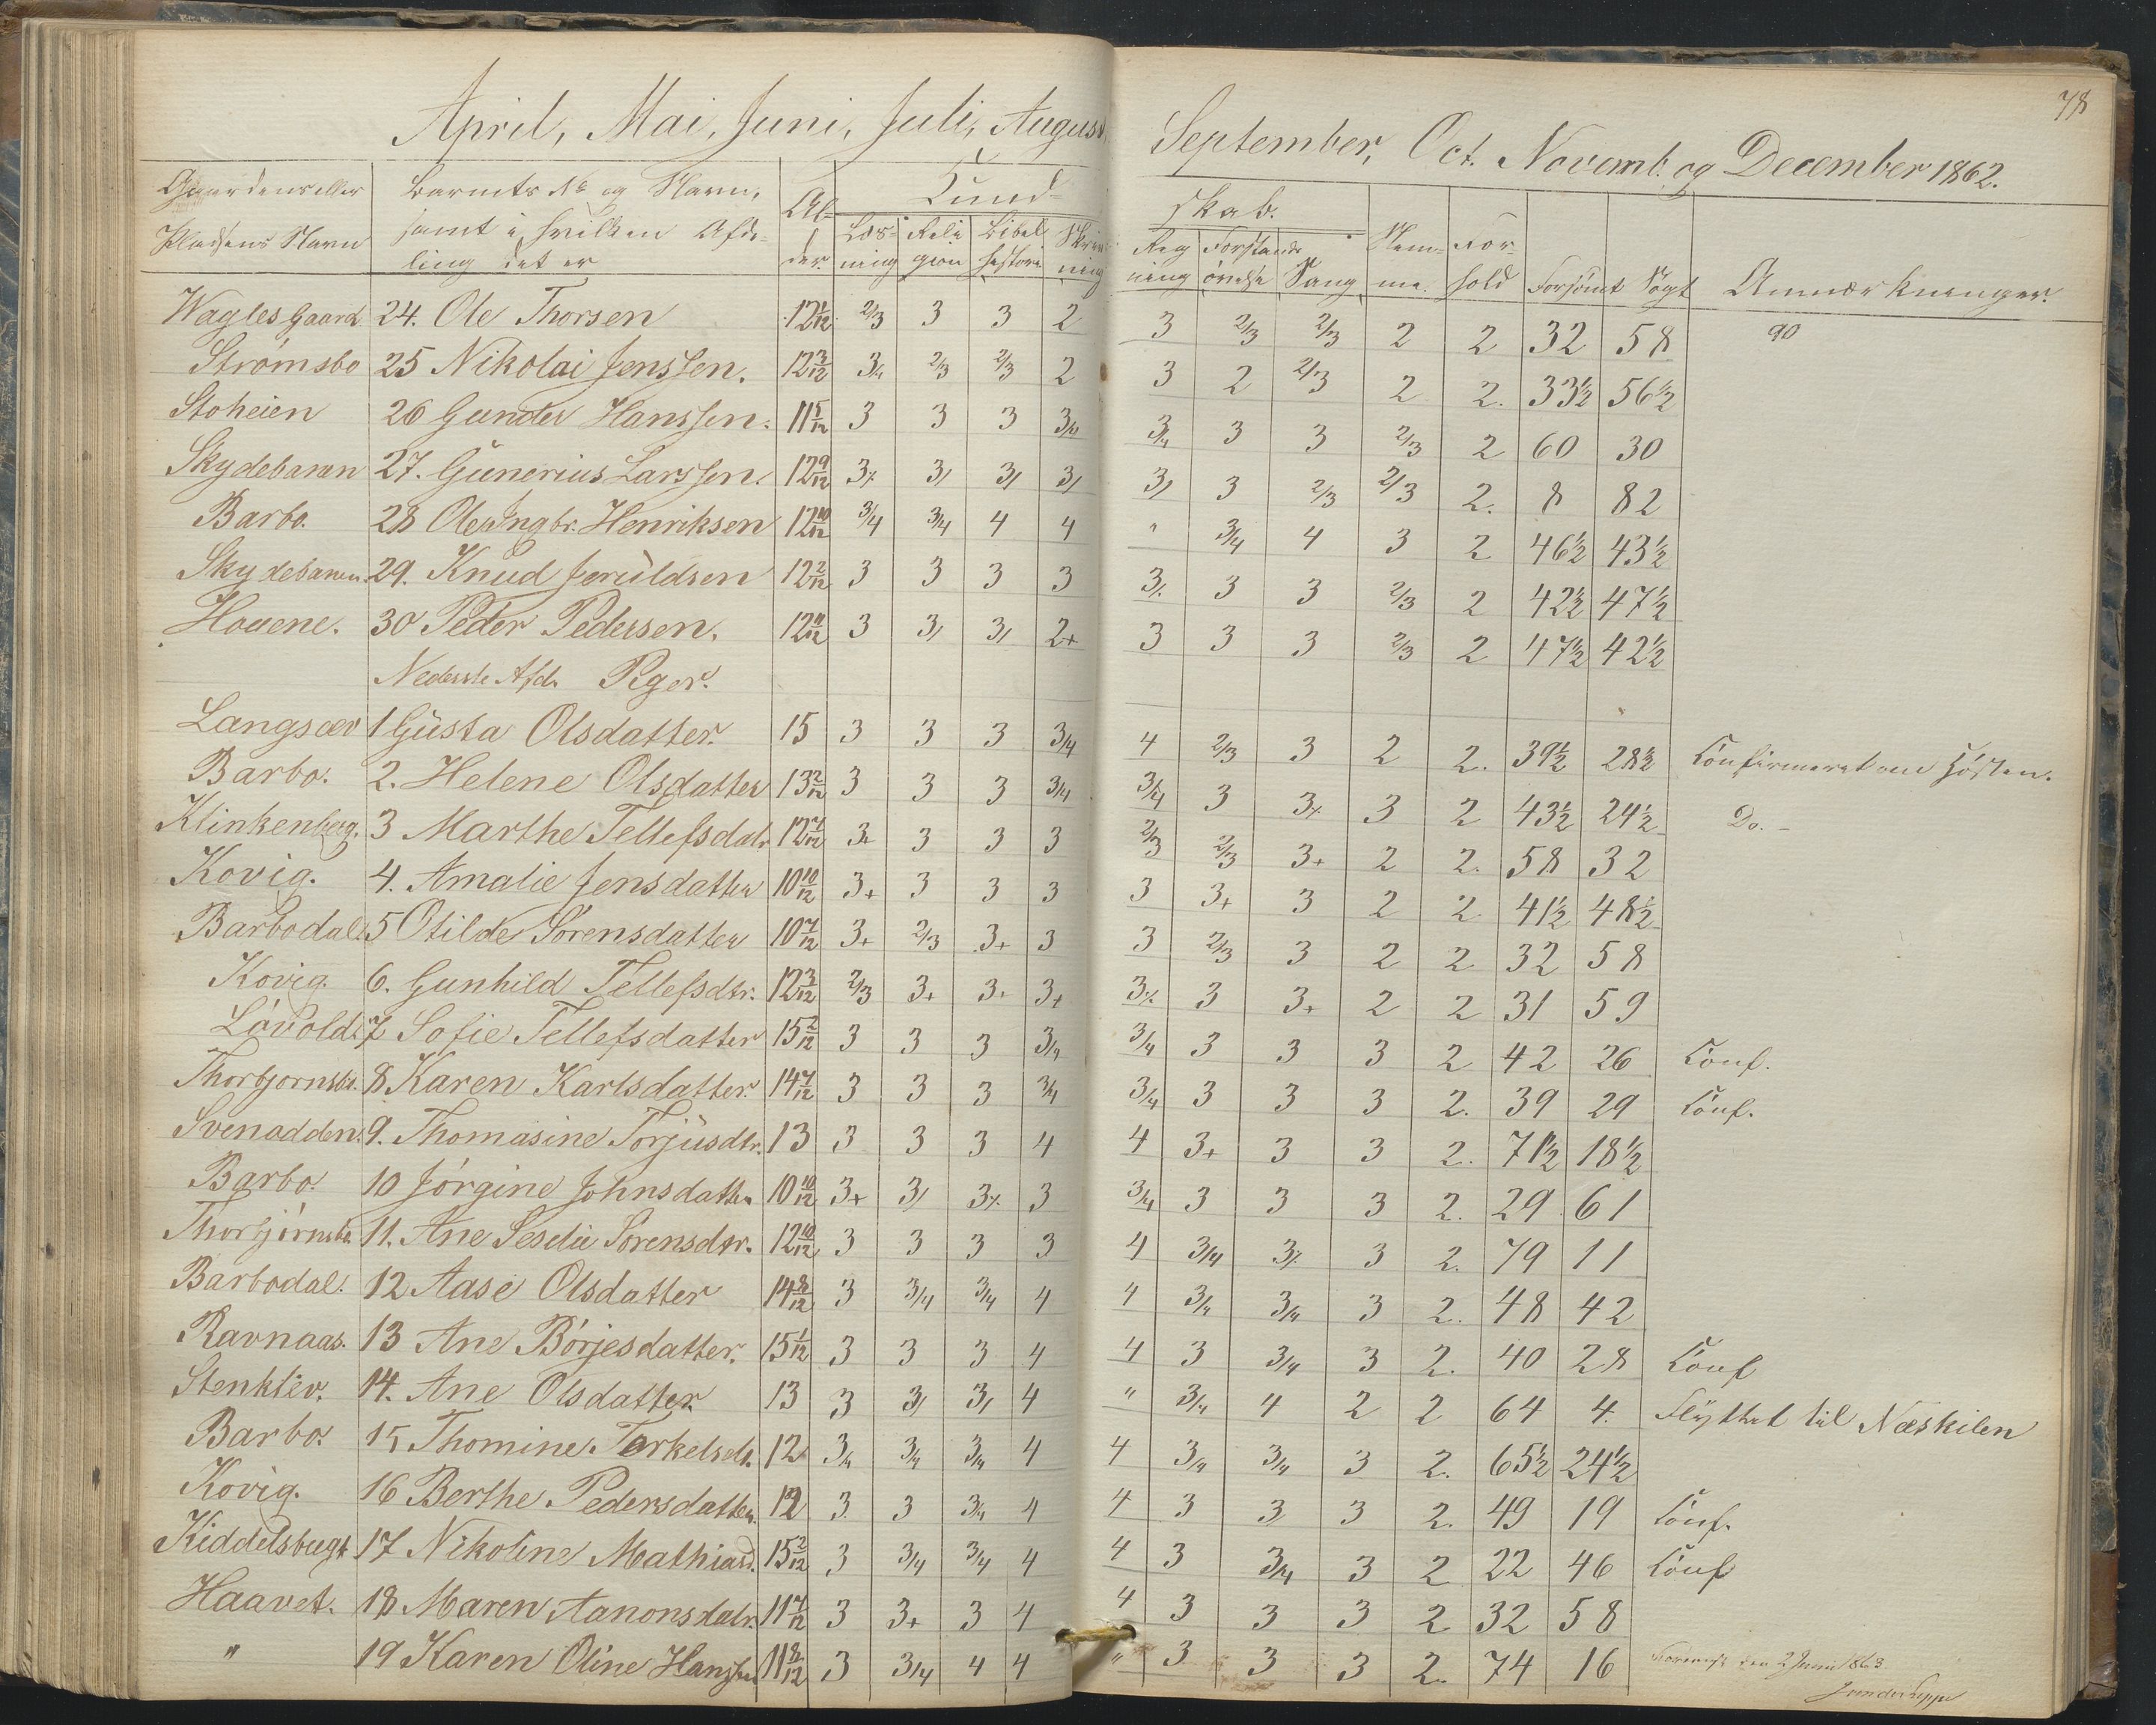 78
April, Mai, Juni, Juli, August, September, Oct. Novemb. og December 1862.
Gaardens eller Barnets No og Navn, Al- Kund- skab.
Pladsens Navn samt i hvilken Afde- der. Læs- Reli Bibel Skriv Reg Forstands Nem- For-
ling det er ning gion historie ning ning øvelse Sang me. hold Forsömt Sögt Anmærkninger.
Wagles Gaard 24. Ole Thorsen 12 1/12 2/3 3 3 2 3 2/3 2/3 2 2 32 58 90
Strömsbo 25 Nikolai Jenssen. 12 3/12 3/4 2/3 2/3 2 3 2 2/3 2 2. 33½ 56½
Stoheien 26 Gunder Hanssen. 11 5/12 3 3 3 3/4 3/4 3 3 2/3 2 60 30
Skydebanen 27. Gunerius Larssen. 12 9/12 3% 3/ 3/ 3/ 3/ 3 2/3 2/3 2. 8 82
Barbo. 28 Ole Ingbr. Henriksen 12 10/12 3/4 3/4 4 4 " 3/4 4 3 2 46½ 43½
Skydebanen. 29. Knud Jeruldsen 12 2/12 3 3 3 3 3% 3 3 2/3 2 42½ 47½
Houene. 30 Peder Pedersen. 12 11/12 3 3/ 3/ 2+ 3 3 3 2/3 2 47½ 42½
Nederste Afd. Piger.
Langsæv 1 Gusta Olsdatter. 15 3 3 3 3/4 4 2/3 3 2 2. 39½ 28½ Confirmeret om Hösten.
Barbo. 2. Helene Olsdatter 13 2/12 3 3 3 3/4 3/4 3 3% 3 2 43½ 24½ Do. -
Klinkenberg. 3 Marthe Tellefsdatr 12 7/12 3+ 3 3 3 2/3 2/3 3+ 2 2. 58 32
Kovig. 4. Amalie Jensdatter 10 10/12 3+ 3 3 3 3 3+ 3 2 2 41½ 48½
Barbodal. 5 Otilde Sörensdatter 10 7/12 3+ 2/3 3+ 3 3 2/3 3 2 2 32 58
Kovig. 6. Gunhild Tellefsdtr. 12 3/12 2/3 3+ 3+ 3+ 3% 3 3+ 2 2 31 59
Lóvold. 7 Sofie Tellefsdatter 15 2/12 3 3 3 3/4 3/4 3 3 3 2 42 26 Conf.
Thorbjornsbo. 8 Karen Karlsdatter. 14 7/12 3 3 3 3/4 3/4 3 3 3 2. 39 29 Conf.
Svenodden. 9. Thomasine Torjusdtr. 13 3 3 3 4 4 3+ 3 3 2. 71½ 18½
Barbo. 10 Jórgine Johnsdatter 10 10/12 3+ 3/ 3% 3 3/4 3 3 3 2. 29 61
Thorbjörnsbo. 11. Ane Seselie Sörensdtr. 12 10/12 3 3 3 3 4 3/4 3% 3 2. 79 11
Barbodal. 12 Aase Olsdatter 14 8/12 3 3/4 3/4 4 4 3/4 3/4 3 2. 48 42
Ravnaas. 13 Ane Börjesdatter. 15 1/12 3 3 3 4 4 3 3/4 3 2. 40 28 Conf
Stenkliv. 14. Ane Olsdatter. 13 3 3/ 3/ 4 " 3/4 4 2 2 64 4. Flyttet til Næskilen
Barbo. 15 Thomine Torkelsdt. 12 3/4 3/4 3/4 4 4 3/4 3/4 3 2. 65½ 24½
Kovig. 16 Berthe Pedersdatter. 12 3 3 3/4 4 4 3 3 3 2. 49 19 Conf.
Kiddelsbugt 17 Nikoline Mathiasd. 15 2/12 3 3/4 3/4 4 4 3 3/4 3 2 22 46 Conf
Haavet. 18 Maren Aanonsdatr. 11 7/12 3 3+ 3 4 4 3 3 3 2 32 58
" 19 Karen Oline Hanssen 11 8/12 3 3/4 4 4 " 3 3 3 2. 74 16
den 2 Juni 1863